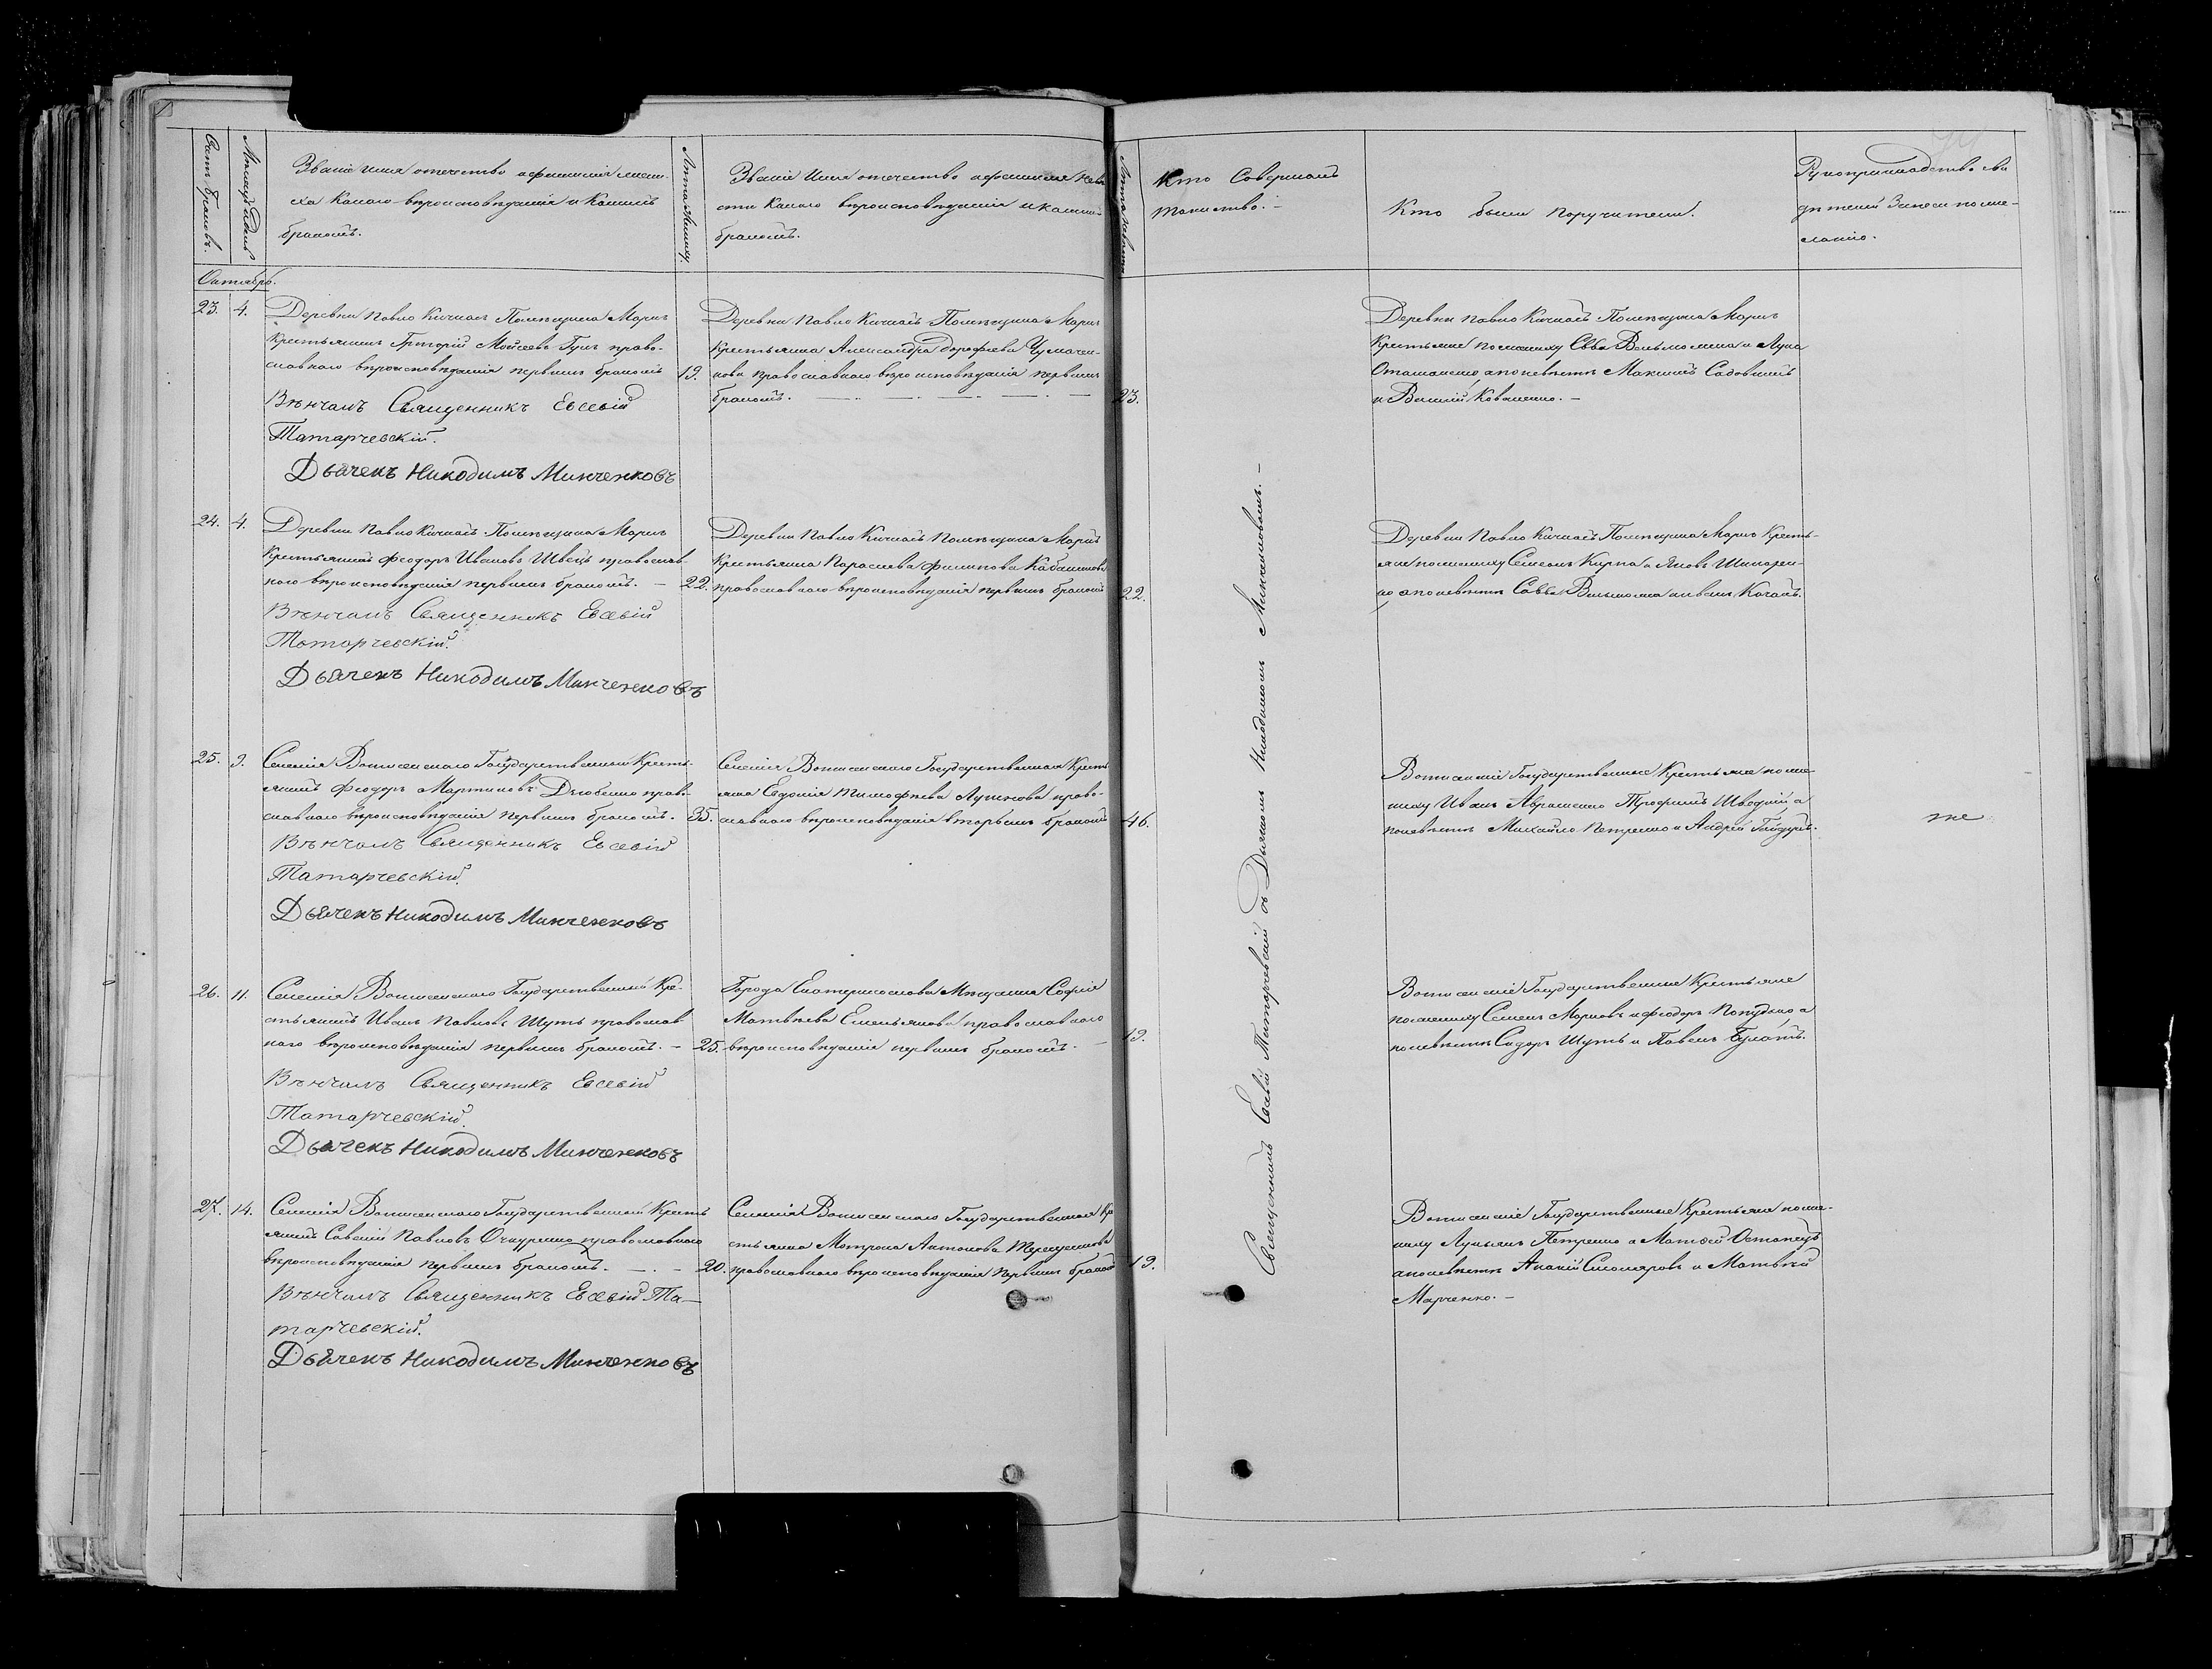 Счетъ браковъ.
Мѣсяцъ и день
Званіе имя отечество и фамилія жени-
ха какого вѣроисповѣданія и коимъ
бракомъ.
Лѣта жениху.
Званіе Имя отечество и фамилия неве
сти какого вѣроисповѣданія и коимъ
бракомъ.
Лѣта невѣсти
Кто Совершалъ
таинство.-
Кто были поручители.
Рукоприкладство сви
дѣтелей Записи по же-
ланію.
Октябрь.
23. 4. Деревни Павло Кичкасъ Помѣщика Маркъ
Крестьянинъ Григорій Моисеевъ Гуцъ право-
славнаго вѣроисповѣданія первымъ бракомъ 19.
Вѣнчалъ Священникъ Евсевій
Татарчевскій.
Дьячекъ Никодимъ Минченковъ
Деревни Павло Кичкасъ Помѣщика Маркъ
Крестьянка Александра Дорофеева Чумачен-
кова православнаго вѣроисповѣданія первымъ
бракомъ. 23.
Деревни Павло Кичкасъ Помѣщика Маркъ
Крестьяне по жениху Савва Вельможка и Лука
Отаманенко, а по невѣстѣ Максимъ Садовничъ
и Василій Коваленко. -
24. 4. Деревни Павло Кичкасъ Помѣщика Маркъ
Крестьянинъ Феодоръ Ивановъ Швецъ православ-
наго вѣроисповѣданія первымъ бракомъ. - 22.
Вѣнчалъ Священникъ Евсевій
Татарчевскій.
Дьячекъ Никодимъ Минченковъ
Деревни Павло Кичкасъ Помѣщика Маркъ
Крестьянка Параскева Филипова
православнаго вѣроисповѣданія первымъ бракомъ 22.
Деревни Павло Кичкасъ Помѣщика Маркъ Кресть-
яне по жениху Семенъ Кирпа и Яковъ
а по невѣстѣ Савва Вельможка
25. 9. Селенія Вознесенскаго Государственный Кресть-
янинъ Феодоръ Мартиновъ Дзюбенко право-
славнаго вѣроисповѣданія первымъ бракомъ. 35.
Вѣнчалъ Священникъ Евсевій
Татарчевскій.
Дьячекъ Никодимъ Минченковъ
Селенія Вознесенскаго Государственная Кресть
янка Евдокія Тимофеева Лукенова право-
славнаго вѣроисповѣданія вторымъ бракомъ 46.
Вознесенскіе Государственные Крестьяне по же-
ниху Иванъ Авраменко Трофимъ Шведкій а
по невѣстѣ Михайло Петренко и Андрей Гайдукъ.
26. 11. Селенія Вознесенскаго Государственный Кре-
стьянинъ Иванъ Павловъ Шуть православ
наго вѣроисповѣданія первымъ бракомъ. - 25.
Вѣнчалъ Священникъ Евсевій
Татарчевскій.
Дьячекъ Никодимъ Минченковъ
Города Екатеринослава Мѣщанка Софія
Матвѣева Емельянова православнаго
вѣроисповѣданія первымъ бракомъ. - 19.
Вознесенскіе Государственные Крестьяне
по жениху Семенъ Марковъ и Феодоръ Попудько а
по невѣстѣ Сидоръ Шуть и Павелъ Булатъ.
27. 14. Селенія Вознесенскаго Государственный Кресть
янинъ Савелій Павловъ Очкуренко православнаго
вѣроисповѣданія первымъ бракомъ. - 20.
Вѣнчалъ Священникъ Евсевій Та-
тарчевскій.
Дьячекъ Никодимъ Минченковъ
Селенія Вознесенскаго Государственная Кр
стьянка Матрона Антонова Терещенкова
православнаго вѣроисповѣданія первымъ бракомъ 19.
Вознесенскіе Государственные Крестьяне по же-
ниху Лукьянъ Петренко и Матвей Остапецъ
а по невѣстѣ Ананій Столяровъ и Матвѣй
Марченко. -
Священникъ Евсевій Татарчевскій съ Дьячкомъ Никодимомъ Минченковымъ. -